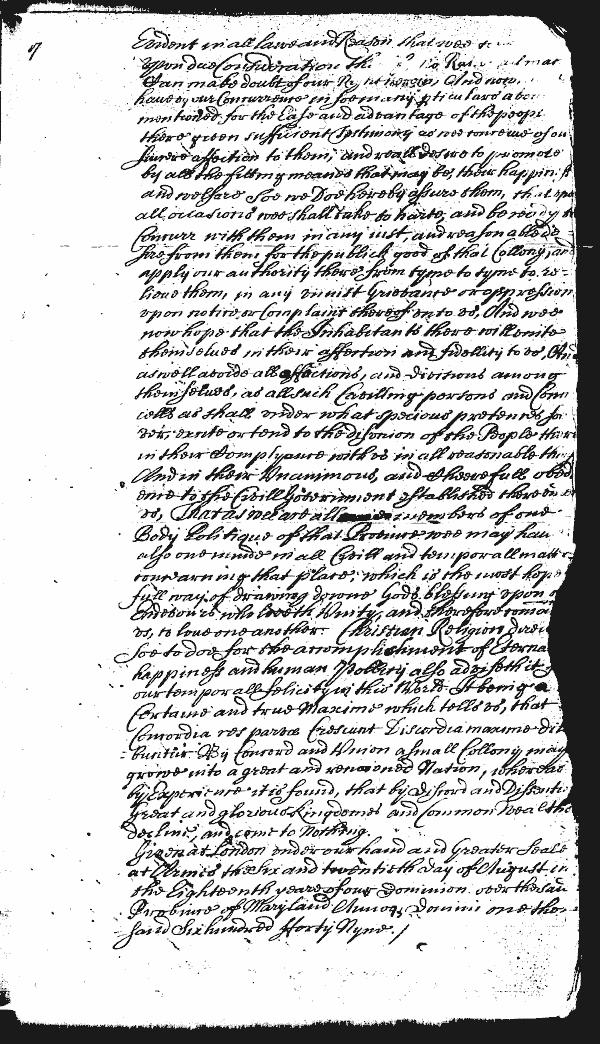 7
Evident in all lawe and Reason that wee
upon due Consideration
Can make doubt of our Right herein, And now
have by our Concurrence in soe many pticulars
mentioned, for the Ease and advantage of the peopl
there given sufficient Testimony as wee conceive of ou
sincere affection to them, and reall desire to promote
by all the fitting meanes that may be, their happin
and welfare Soe we Doe hereby assure them, that upo
all occasions wee shall take to harte, and be ready t
Concurr with them in any iust and reasonable de
sire from them for the publick good of that Collony, an
apply our authority there from tyme to tyme to re
lieve them, in any uniust Grievance or oppression
upon notice or Complaint thereof unto us, And wee
now hope that the Inhabitants there will unite
themselves in their affection and fidellity to us, An
aswell avoide all ffactions, and divisions among
themselves, as all such Cavilling persons and Coun
cells as shall under what specious pretences so
ever, excite or tend to the disunion of the People there
in their Complyance with us in all reasonable thi
And in their Unanimous, and Cheerefull obed
ence to the Civill Government established there un
us, That as we are all members of one
Body Politique of that Province wee may have
also one minde in all Civill and temporall matters
concearning that place, which is the most hope
full way of drawing downe Gods blessing upon o
Endevours who loveth Unity, and therefore
us, to love one another. Christian Religion
soe to doe for the accomplishment of Eterna
happiness and human Pollity also adviseth it f
our temporall felicity in this World. It being a
Certaine and true Maxime which tells us, that
Concordia res parvæ Crescunt Discordia maxime dil
buntur By Concord and Union a small Collony may
growe into a great and renowned Nation, whereas
by Experience it is found, that by discord and Dissenti
Great and glorious Kingdomes and Common wealthe
decline, and come to Nothing.
Given at London under our hand and Greater Seale
at Armes the Six and twentieth day of August in
the Eighteenth yeare of our Dominion over the sai
Province of Maryland Annoq Domini one thou
sand Six hundred fforty Nyne.